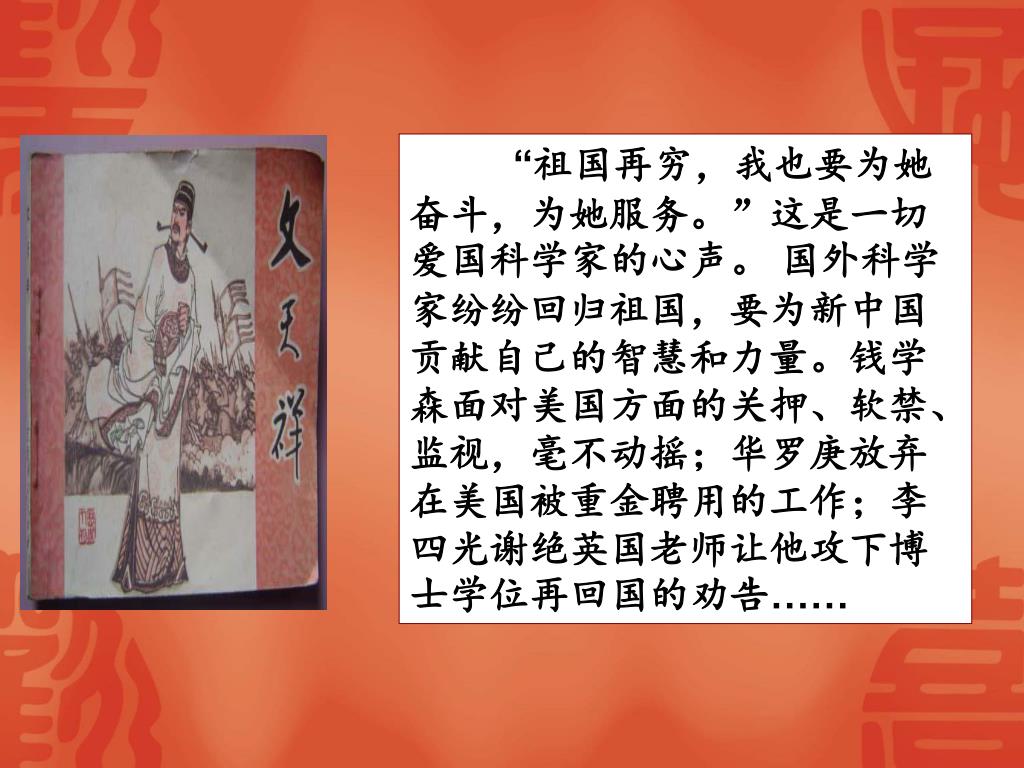 文天祥
“祖国再穷，我也要为她
奋斗，为她服务。”这是一切
爱国科学家的心声。 国外科学
家纷纷回归祖国，要为新中国
贡献自己的智慧和力量。钱学
森面对美国方面的关押、软禁、
监视，毫不动摇；华罗庚放弃
在美国被重金聘用的工作；李
四光谢绝英国老师让他攻下博
士学位再回国的劝告……